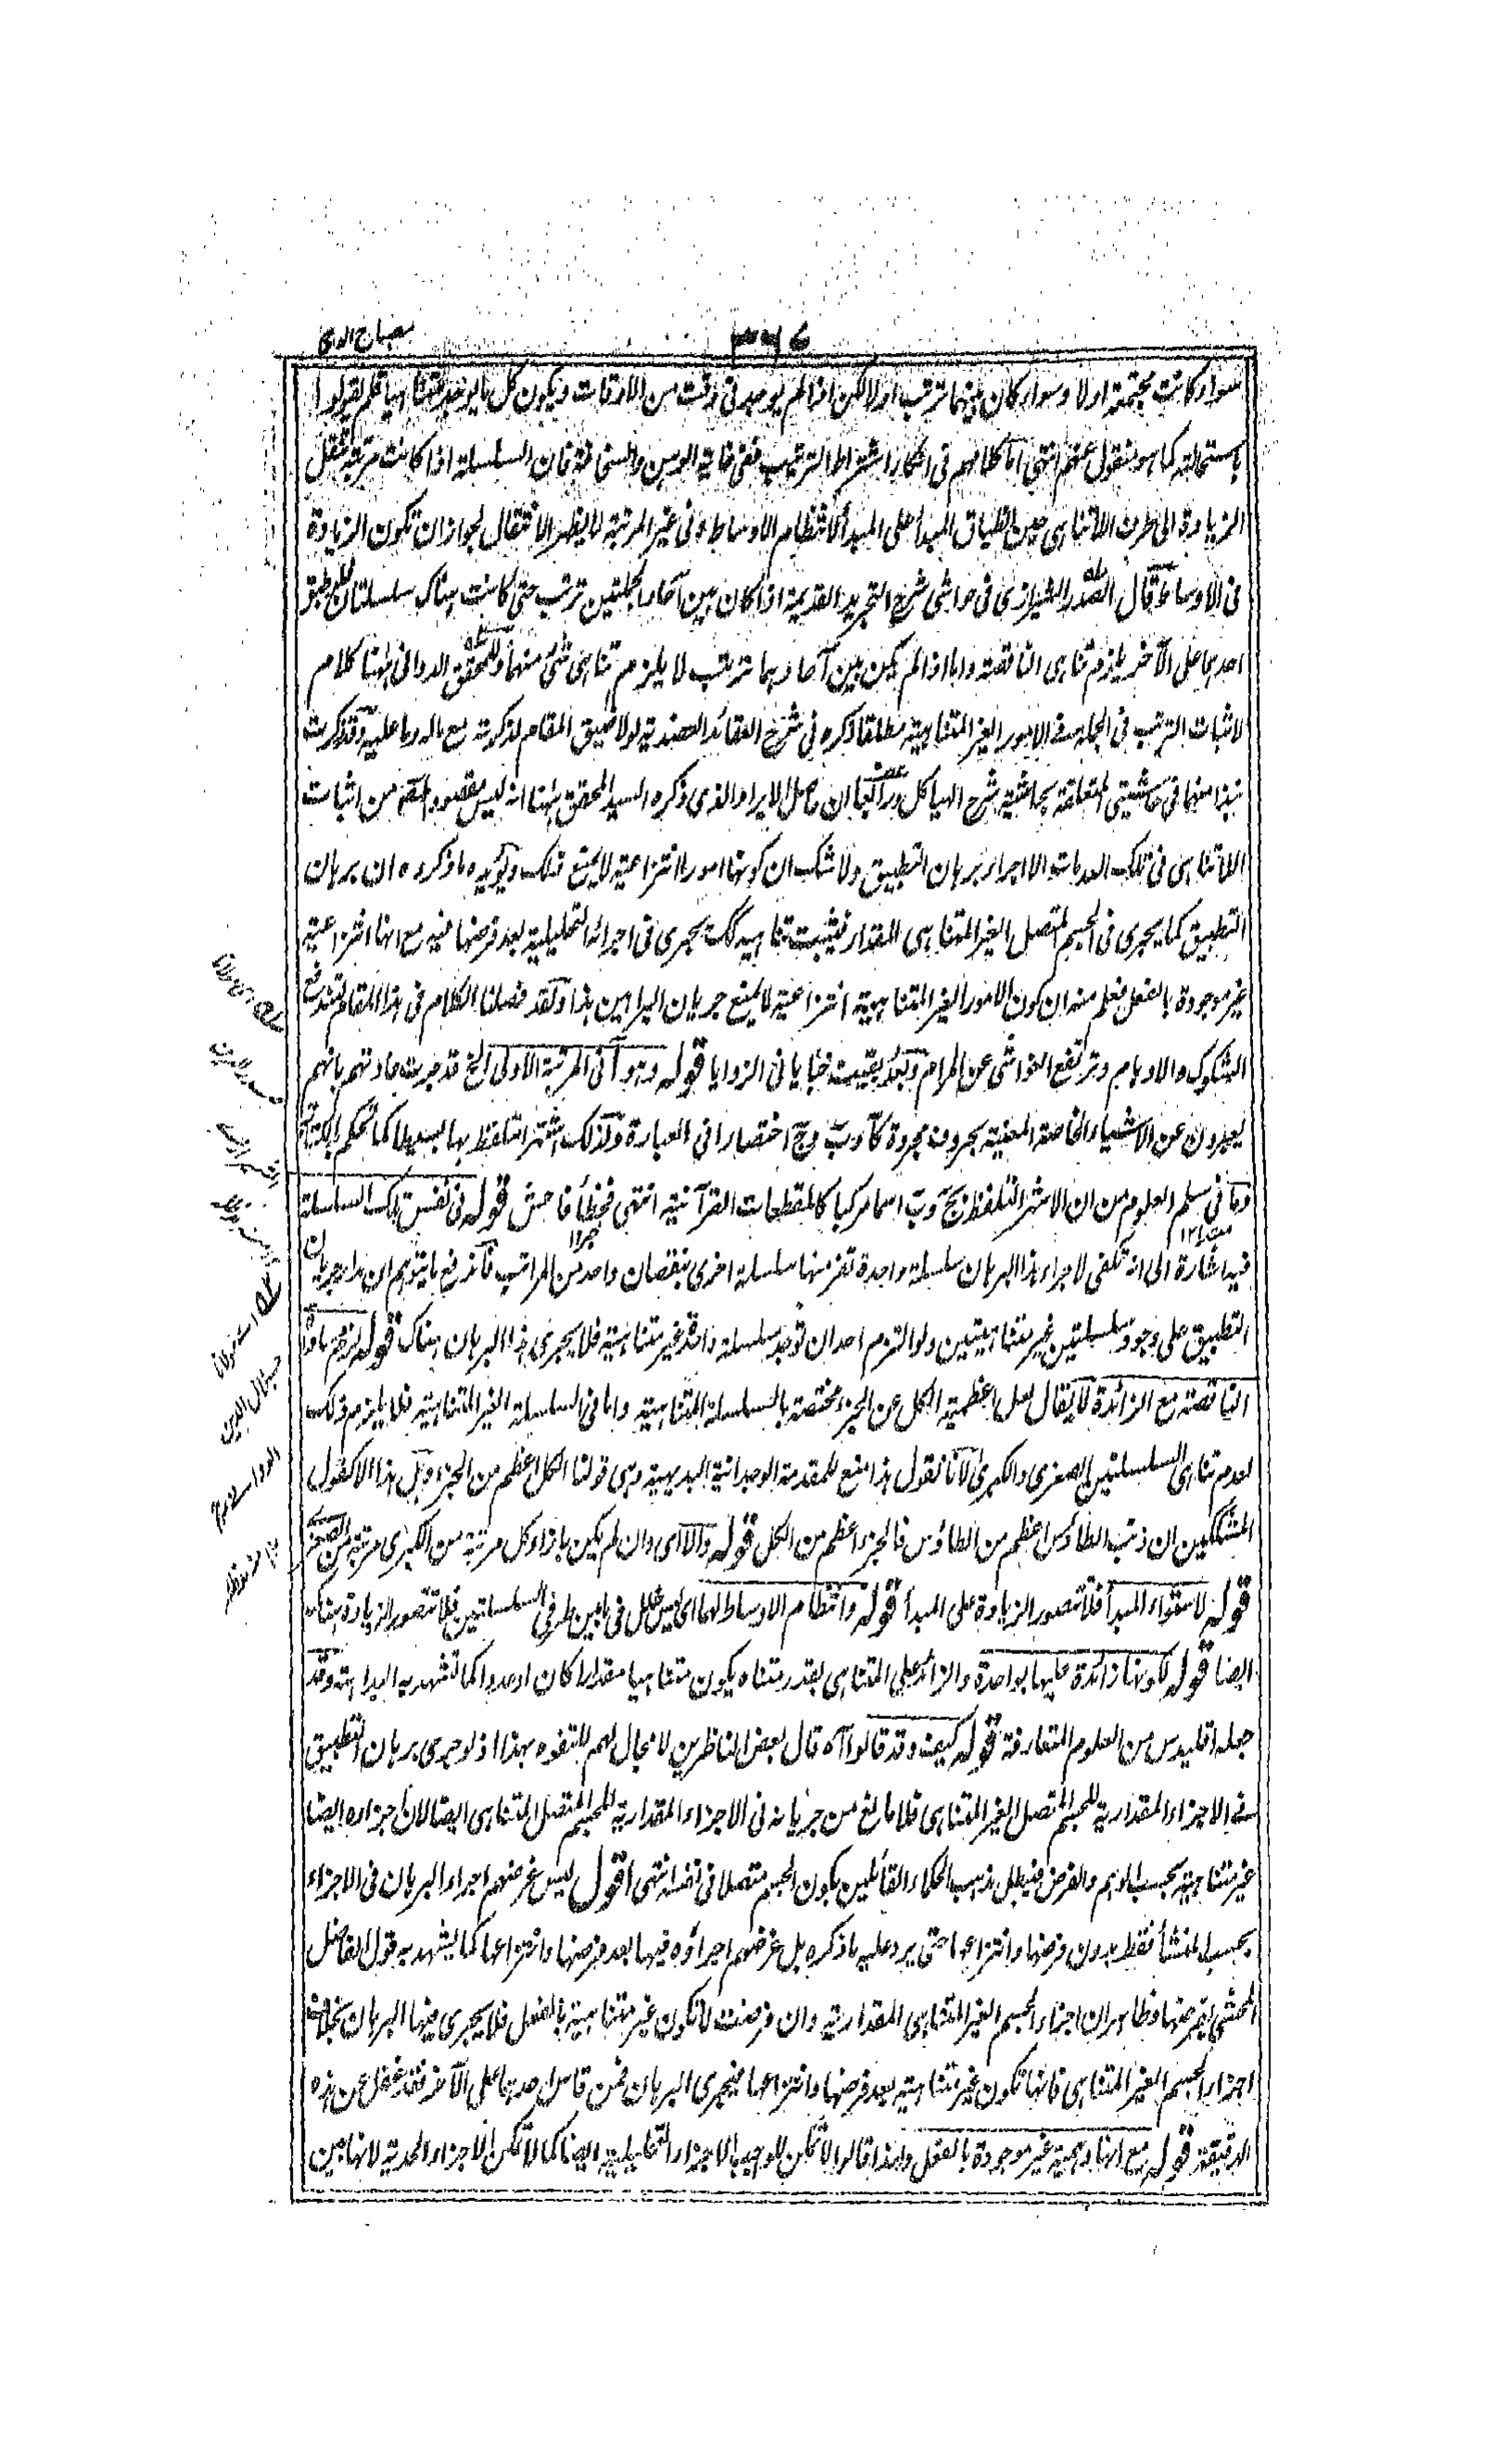 مصباح الدجى
سواء كانت مجتمعة اولا وسواء كان بينهما ترتب اولا لكن اذا لم يوجد فى وقت من الاوقات ويكون كل ما يوجد متناهيا فلم يقولوا
باستحالته كما هو منقول عنهم انتهى اما كلامهم فى انكار اشتراط الترتيب ففى غاية الوهن والسخافة فان السلسلة اذا كانت مرتبة تنقل
الزيادة الى طرف اللاتناهى حين انطباق المبدأ على المبدأ لانتظام الاوساط وفى غير المرتبة لا يظهر الانتقال لجواز ان تكون الزيادة
فى الاوساط وقال الصدر الشيرازى فى حواشى شرح التجريد القديمة اذا كان بين آحاد الجملتين ترتب حتى كانت هناك سلسلتان
احدهما على الآخر يلزم تناهى الناقصة واما اذا لم يكن بين آحادهما ترتب لا يلزم تناهى شئ منهما وللمحقق الدوانى ههنا كلام
لاثبات الترتب فى الجملة فى الامور الغير المتناهية مطلقا ذكره فى شرح العقائد العضدية لولا ضيق المقام لذكرته مع ماله وما عليه وقد ذكرت
نبذا منها فى حاشيتى المتعلقة بحاشية شرح الهياكل ورابعا ان حاصل الايراد الذى ذكره السيد المحقق ههنا انه ليس مقصود المص من اثبات
اللاتناهى فى تلك العدمات الا اجراء برهان التطبيق ولا شك ان كونها امورا انتزاعية لا يمنع ذلك ويؤيده ما ذكروه ان برهان
التطبيق كما يجرى فى الجسم المتصل الغير المتناهى المقدار فيثبت تناهيه كك يجرى فى اجزائه التحليلية بعد فرضها فيه مع انها انتزاعية
غير موجودة بالفعل فعلم منه ان كون الامور الغير المتناهية انتزاعية لا يمنع جريان البراهين هذا ولقد فصلنا الكلام فى هذا المقام لتندفع
الشكوك والاوهام وترتفع الغواشى عن المرام وبعد بقيت خبايا فى الزوايا قوله وهو آ فى المرتبة الاولى الخ قد جرت عادتهم بانهم
يعبرون عن الاشياء الخاصة المعنية بحروف مجردة كآ وب وج اختصارا فى العبارة ولذلك اشتهر التلفظ بها بسيطا كما تحكم به الكتابة
وما فى سلم العلوم من ان الاشهر التلفظ بج وب اسما مركبا كالمقطعات القرآنية انتهى فخطأ فاحش قوله فى نفس تلك السلسلة
فيه اشارة الى انه تكفى لاجراء هذا البرهان سلسلة واحدة تفرز منها سلسلة اخرى بنقصان واحد من المراتب فاندفع ما يتوهم ان مدار جريان
التطبيق على وجود سلسلتين غير متناهيتين ولو التزم احد ان توجد سلسلة واحدة غير متناهية فلا يجرى هذا البرهان هناك قوله لزم مساواة
الناقصة مع الزائدة لا يقال لعل اعظمية الكل عن الجزء مختصة بالسلسلة المتناهية واما فى السلسلة الغير المتناهية فلا يلزم ذلك
لعدم تناهى السلسلتين الصغرى والكبرى لانا نقول هذا منع للمقدمة الوجدانية البديهية وهى قولنا الكل اعظم من الجزء وهل هذا الا كقول
المشككين ان ذنب الطاؤس اعظم من الطاؤس فالجزء اعظم من الكل قوله والا اى وان لم يكن بازاء كل مرتبة من الكبرى مرتبة من الصغرى
قوله لاستواء المبدأ فلا تتصور الزيادة على المبدأ قوله وانتظام الاوساط لهما اى ليس خلل فى ما بين طرفى السلسلتين فلا تتصور الزيادة هناك
ايضا قوله لكونها زائدة عليها بواحدة والزائد على المتناهى بقدر متناه يكون متناهيا مقدارا كان او عددا كما تشهد به البداهة وقد
جعله اقليدس من العلوم المتعارفة قوله كيف وقد قالوا آه قال بعض الناظرين لا مجال لهم للتفوه بهذا اذ لو جرى برهان التطبيق
فى الاجزاء المقدارية للجسم المتصل الغير المتناهى فلا مانع من جريانه فى الاجزاء المقدارية للجسم المتصل المتناهى ايضا لان اجزاءه ايضا
غير متناهية بحسب الوهم والفرض فيبطل مذهب الحكماء القائلين بكون الجسم متصلا فى نفسه انتهى اقول ليس غرضهم اجراء البرهان فى الاجزاء
بحسب المنشأ فقط بدون فرضها وانتزاعها حتى يرد عليه ما ذكره بل غرضهم اجراؤه فيها بعد فرضها وانتزاعها كما يشهد به قول الفاضل
المحشى بفرضها وظاهر ان اجزاء الجسم الغير المتناهى المقدارية وان فرضت لا تكون غير متناهية بالفعل فلا يجرى فيها البرهان بخلاف
اجزاء الجسم الغير المتناهى فانها تكون غير متناهية بعد فرضها وانتزاعها فيجرى البرهان فمن قاس احدهما على الآخر فقد غفل عن هذه
الدقيقة قوله مع انها وهمية غير موجودة بالفعل ولهذا قالوا لا تمكن للوجود بالاجزاء التحليلية ايضا كما لا تمكن الاجزاء الحدية لانها من